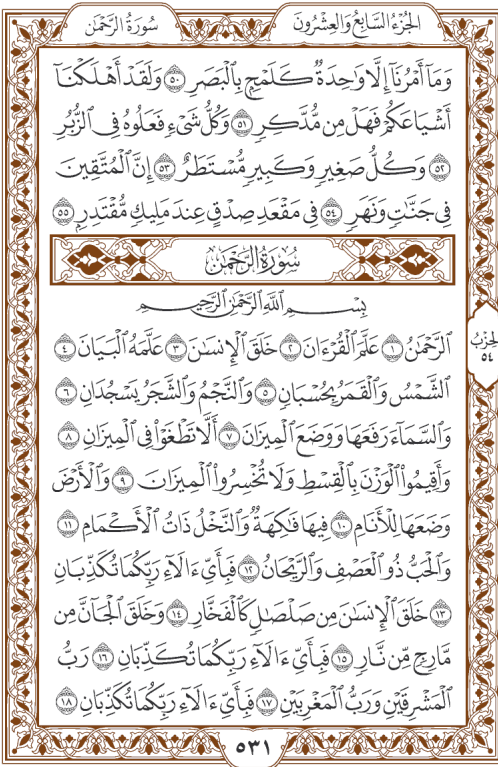 الجُزْءُ السَّابِعُ وَالعِشْرُونَ
سُورَةُ الرَّحْمٰن
وَمَآ أَمْرُنَآ إِلَّا وَٰحِدَةٌ كَلَمْحِۭ بِٱلْبَصَرِ ٥٠ وَلَقَدْ أَهْلَكْنَآ
أَشْيَاعَكُمْ فَهَلْ مِن مُّدَّكِرٍ ٥١ وَكُلُّ شَىْءٍ فَعَلُوهُ فِى ٱلزُّبُرِ
٥٢ وَكُلُّ صَغِيرٍ وَكَبِيرٍ مُّسْتَطَرٌ ٥٣ إِنَّ ٱلْمُتَّقِينَ
فِى جَنَّٰتٍ وَنَهَرٍ ٥٤ فِى مَقْعَدِ صِدْقٍ عِندَ مَلِيكٍ مُّقْتَدِرٍۭ ٥٥
سُورَةُ الرَّحْمٰن
بِسْمِ ٱللَّهِ ٱلرَّحْمَٰنِ ٱلرَّحِيمِ
ٱلرَّحْمَٰنُ ١ عَلَّمَ ٱلْقُرْءَانَ ٢ خَلَقَ ٱلْإِنسَٰنَ ٣ عَلَّمَهُ ٱلْبَيَانَ ٤
ٱلشَّمْسُ وَٱلْقَمَرُ بِحُسْبَانٍ ٥ وَٱلنَّجْمُ وَٱلشَّجَرُ يَسْجُدَانِ ٦
وَٱلسَّمَآءَ رَفَعَهَا وَوَضَعَ ٱلْمِيزَانَ ٧ أَلَّا تَطْغَوْا۟ فِى ٱلْمِيزَانِ ٨
وَأَقِيمُوا۟ ٱلْوَزْنَ بِٱلْقِسْطِ وَلَا تُخْسِرُوا۟ ٱلْمِيزَانَ ٩ وَٱلْأَرْضَ
وَضَعَهَا لِلْأَنَامِ ١٠ فِيهَا فَٰكِهَةٌ وَٱلنَّخْلُ ذَاتُ ٱلْأَكْمَامِ ١١
وَٱلْحَبُّ ذُو ٱلْعَصْفِ وَٱلرَّيْحَانُ ١٢ فَبِأَىِّ ءَالَآءِ رَبِّكُمَا تُكَذِّبَانِ
١٣ خَلَقَ ٱلْإِنسَٰنَ مِن صَلْصَٰلٍ كَٱلْفَخَّارِ ١٤ وَخَلَقَ ٱلْجَآنَّ مِن
مَّارِجٍ مِّن نَّارٍ ١٥ فَبِأَىِّ ءَالَآءِ رَبِّكُمَا تُكَذِّبَانِ ١٦ رَبُّ
ٱلْمَشْرِقَيْنِ وَرَبُّ ٱلْمَغْرِبَيْنِ ١٧ فَبِأَىِّ ءَالَآءِ رَبِّكُمَا تُكَذِّبَانِ ١٨
الحِزْبُ
٥٤
٥٣١